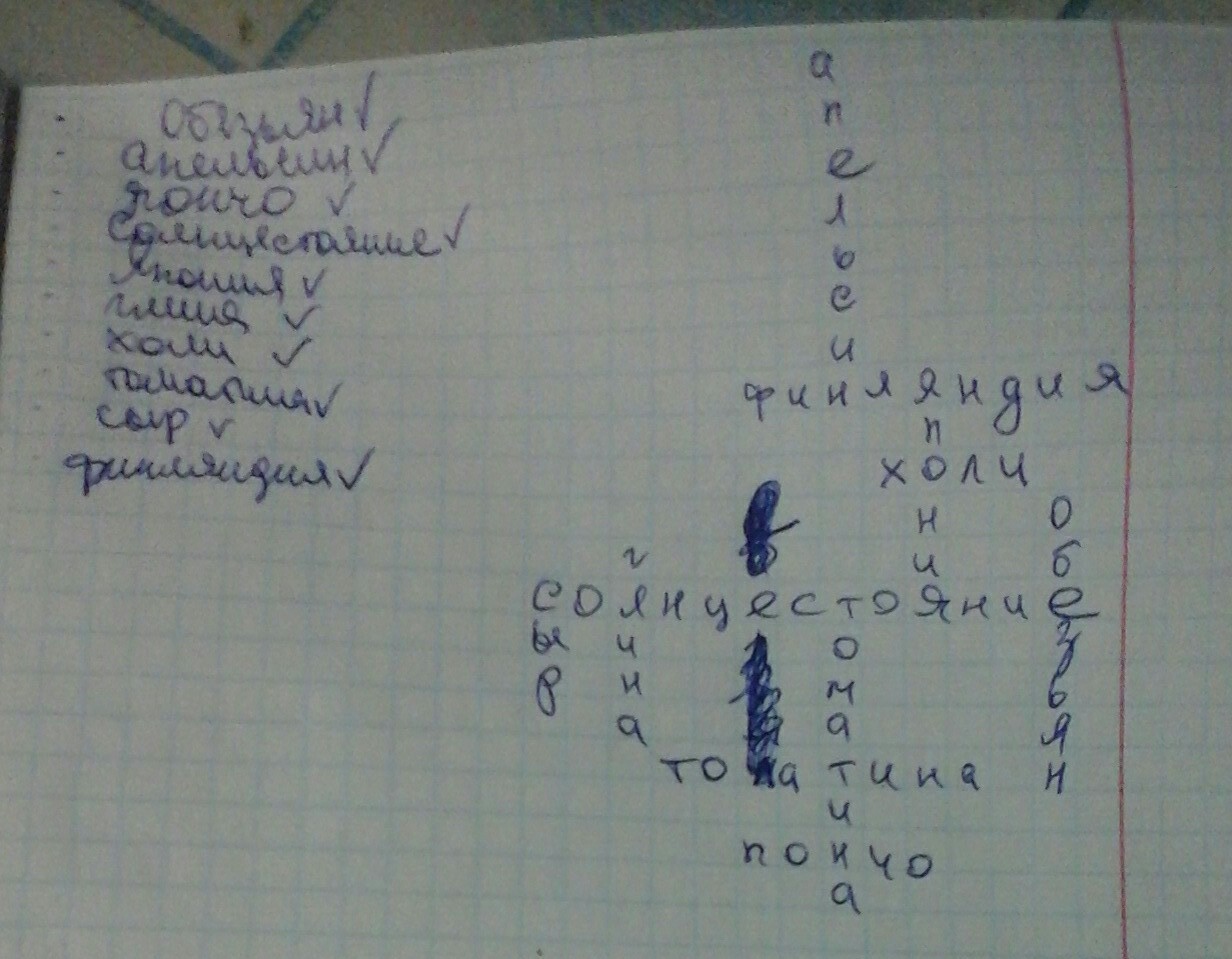 Обезьян ✓
апельсин ✓
пончо ✓
Солнцестояние ✓
Япония ✓
глина ✓
холи ✓
томатина ✓
сыр ✓
финляндия ✓
а
п
е
л
ь
с
и
финляндия
п
холи
н о
г и б
солнцестояние
ы и о з
р н м ь
а а я
томатина н
и
пончо
а